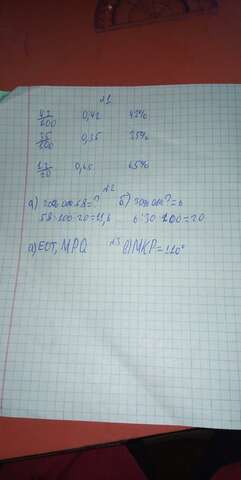 №1
42/100 0,42 42%
35/100 0,35 35%
13/20 0,65 65%
№2
а) 20% от 58=? б) 30% от ?=6
58:100·20=11,6 6:30·100=20
№3
а) ECT, MPQ б) MKP=110°